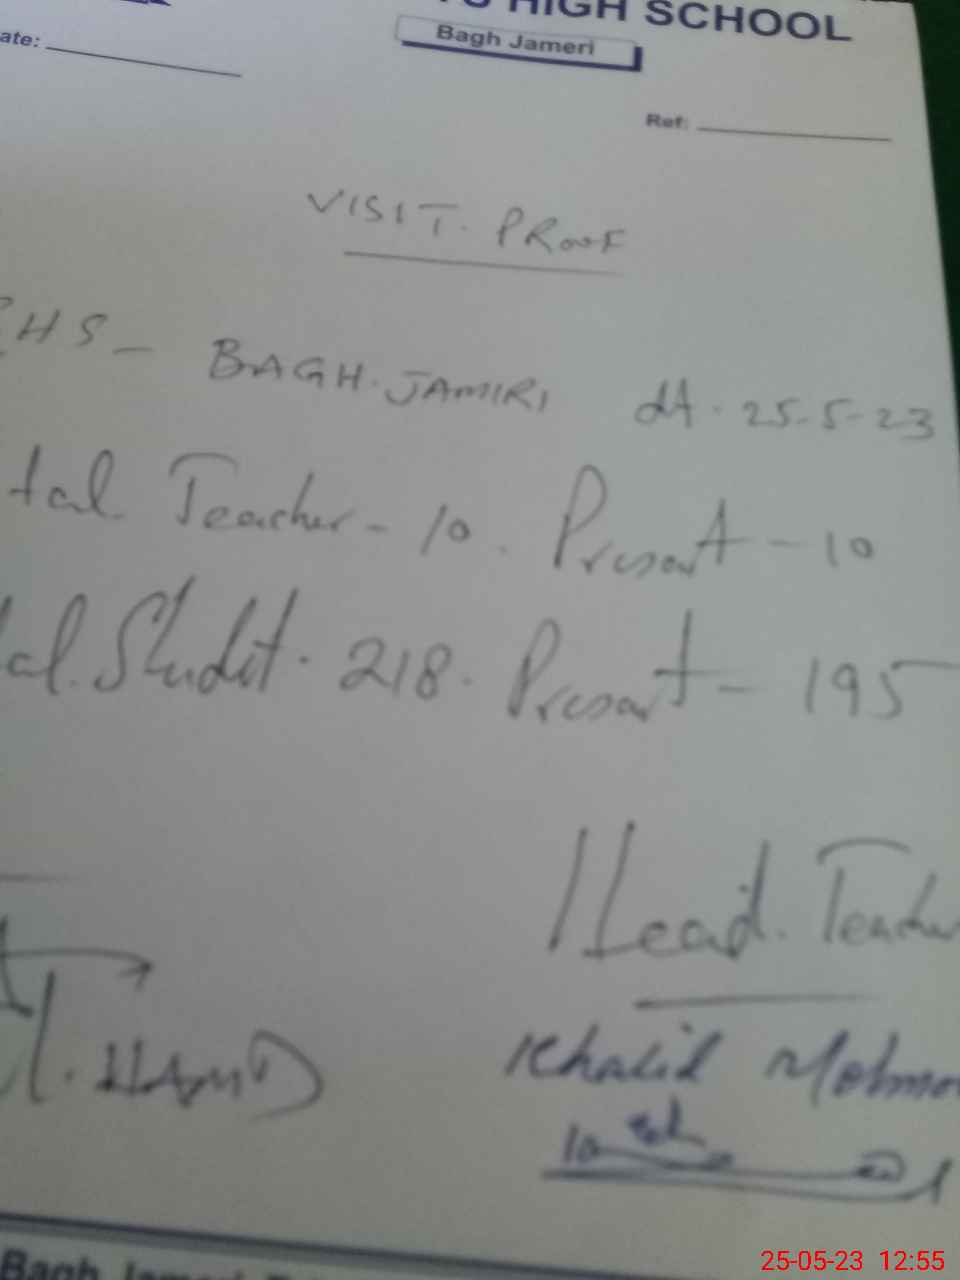 HIGH SCHOOL
Bagh Jameri
ate:
Ref:
VISIT. PROOF
EHS - BAGH. JAMIRI dt. 25-5-23
tal Teacher - 10. Present - 10
al. Student. 218. Present - 195
Head. Teacher
Khalid Mehmo
Bagh Jameri
25-05-23 12:55